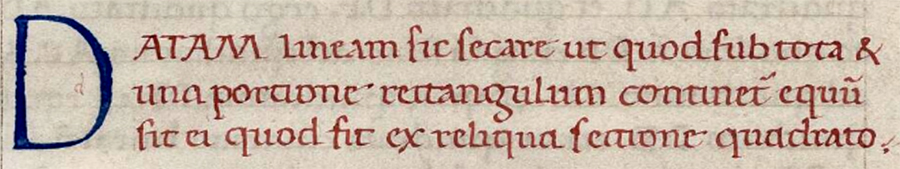 DATAM lineam sic secare ut quod sub tota &
una portione rectangulum continet̃ equũ
sit ei quod fit ex reliqua sectione quadrato.